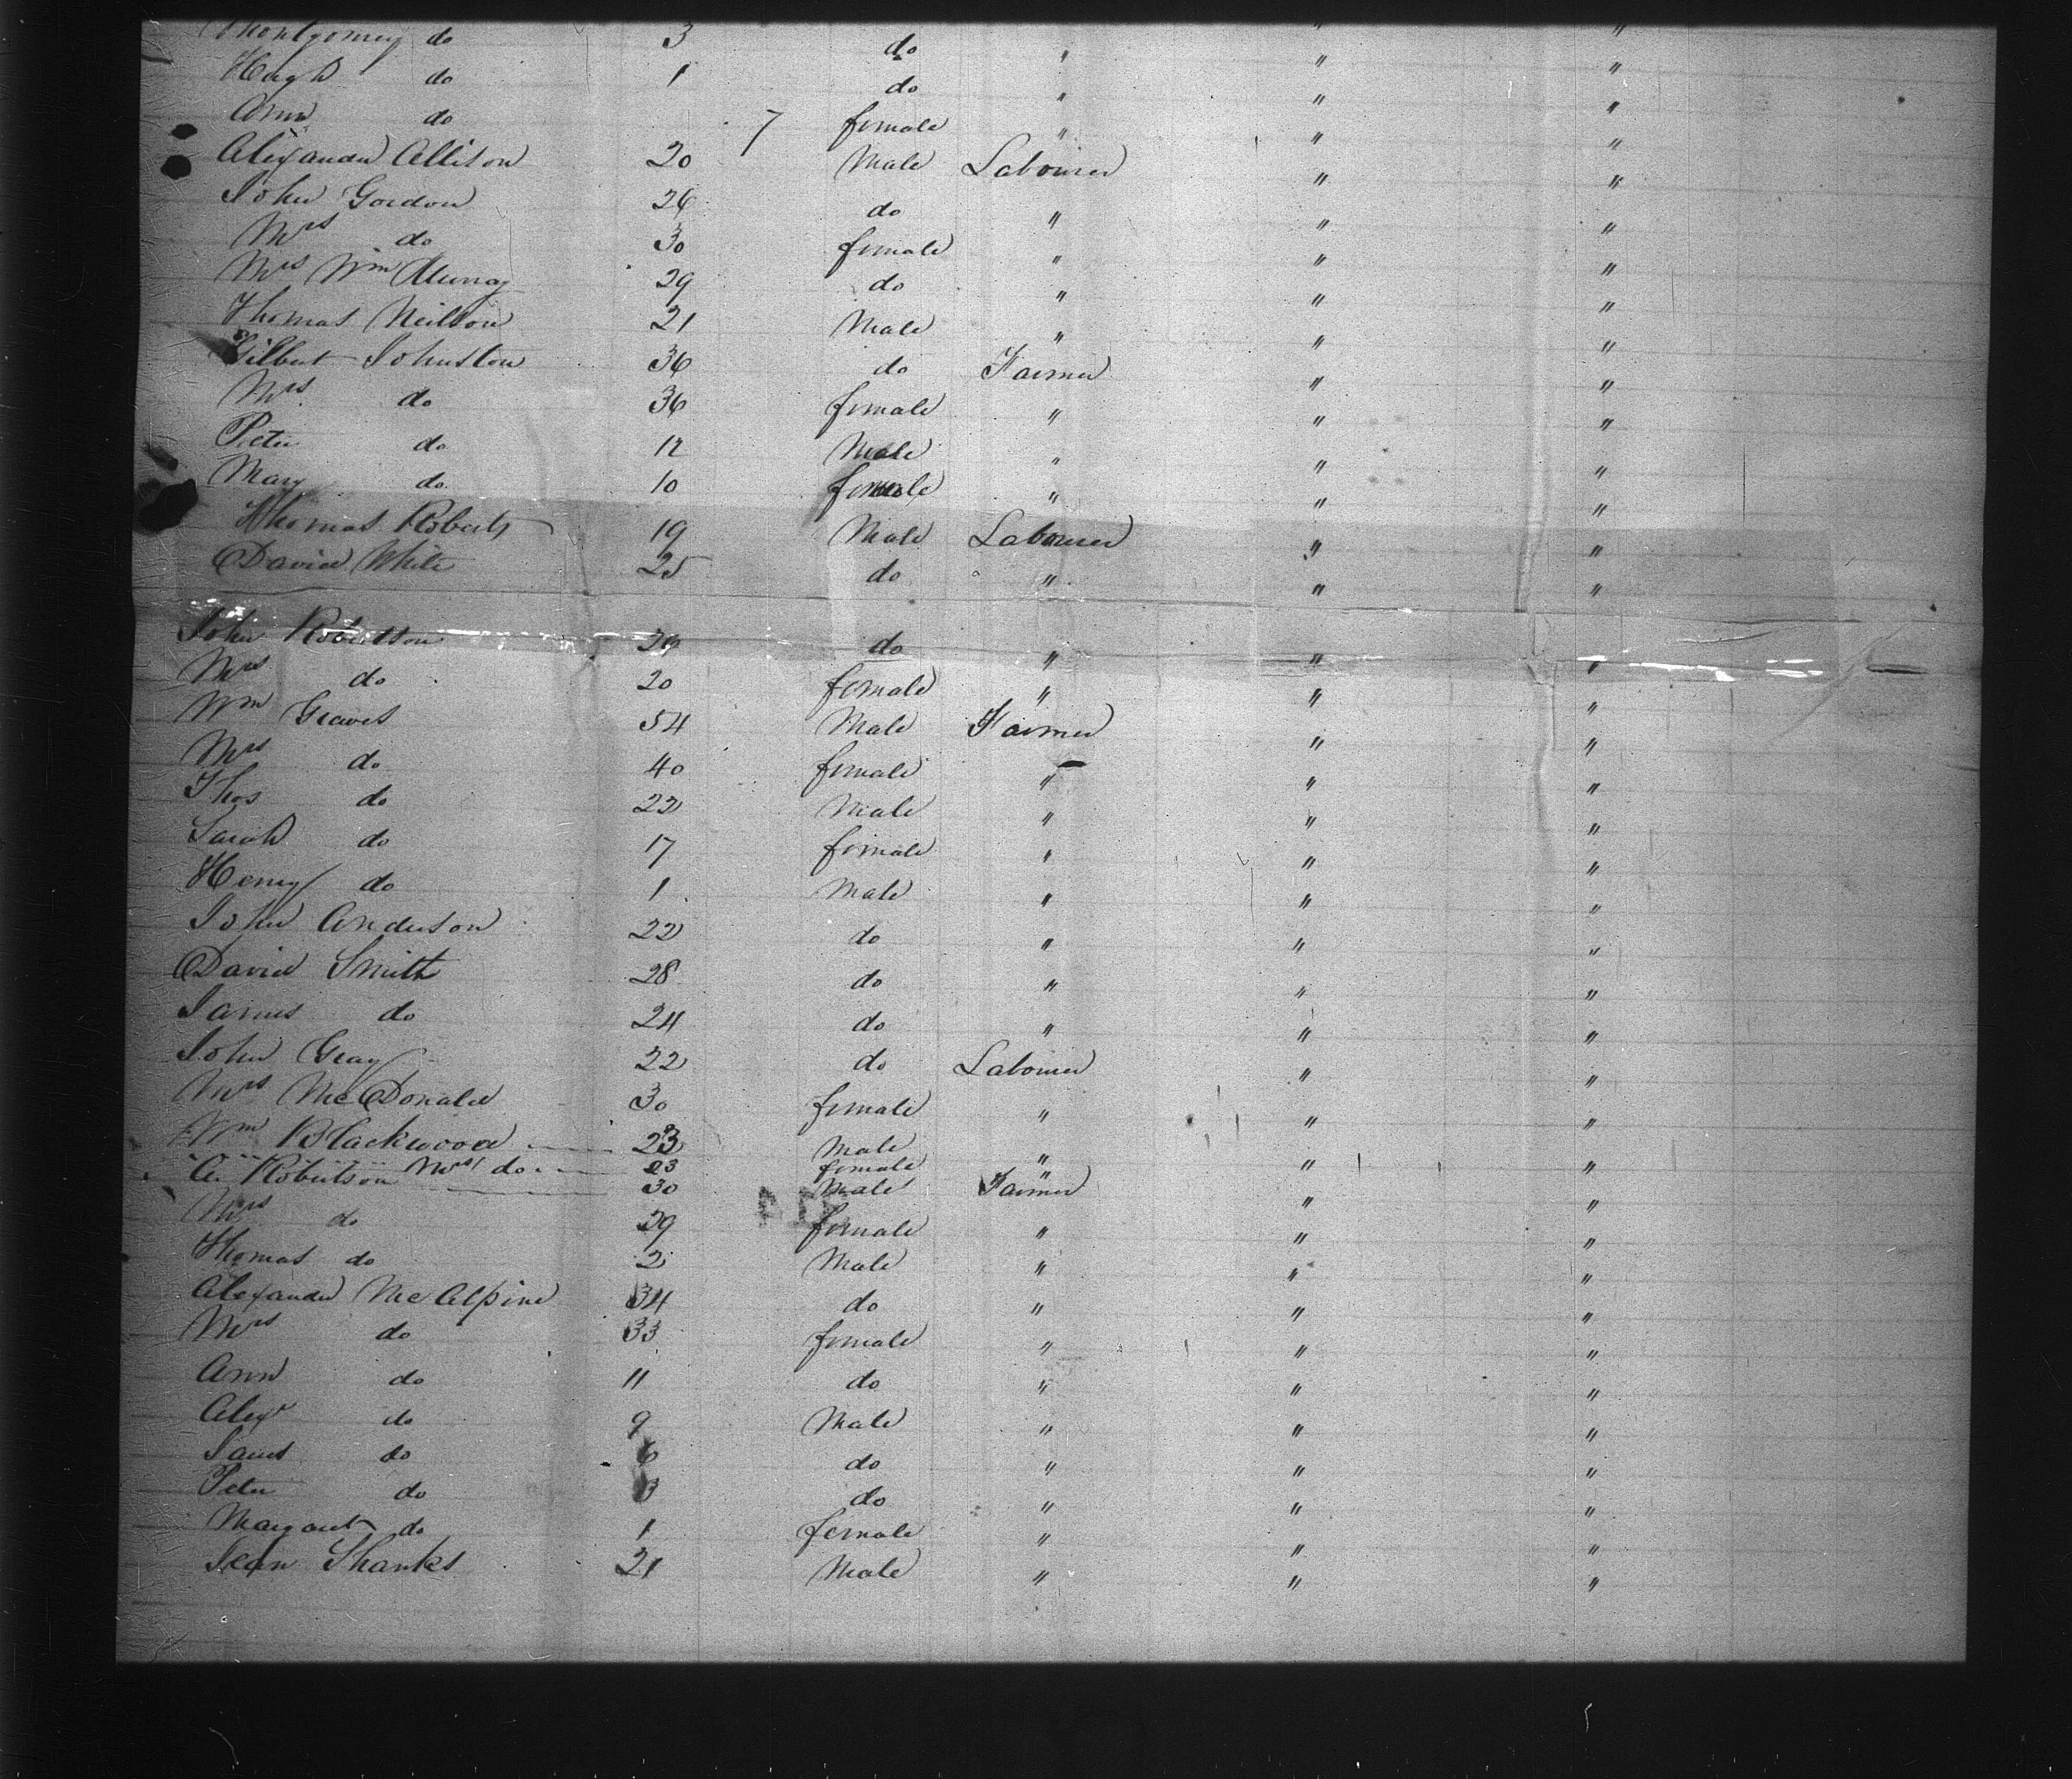 Montgomery do 3 do " " "
Hugh do 1 do " " "
Ann do 7 female " " "
Alexander Allison 20 Male Labourer " "
John Gordon 26 do " " "
Mrs do 30 female " " "
Mrs Wm Murray 29 do " " "
Thomas Neilson 21 Male " " "
Gilbert Johnston 36 do Farmer " "
Mrs do 36 female " " "
Peter do 12 Male " " "
Mary do 10 female " " "
Thomas Roberts 19 Male Labourer " "
David White 25 do " " "
John Robertson do " " "
Mrs do 20 female " " "
Wm Graves 54 Male Farmer " "
Mrs do 40 female " " "
Thos do 22 Male " " "
Sarah do 17 female " " "
Henry do 1 Male " " "
John Anderson 22 do " " "
David Smith 28 do " " "
James do 24 do " " "
John Gray 22 do Labourer " "
Mrs McDonald 30 female " " "
Wm Blackwood 23 Male " " "
Mrs do 23 female "
A. Robertson 30 Male Farmer " "
Mrs do 29 female " " "
Thomas do 2 Male " " "
Alexander McAlpine 34 do " " "
Mrs do 33 female " " "
Ann do 11 do " " "
Alexr do 9 Male " " "
James do 6 do " " "
Peter do 3 do " " "
Margaret do 1 female " " "
Jean Shanks 21 Male " " "